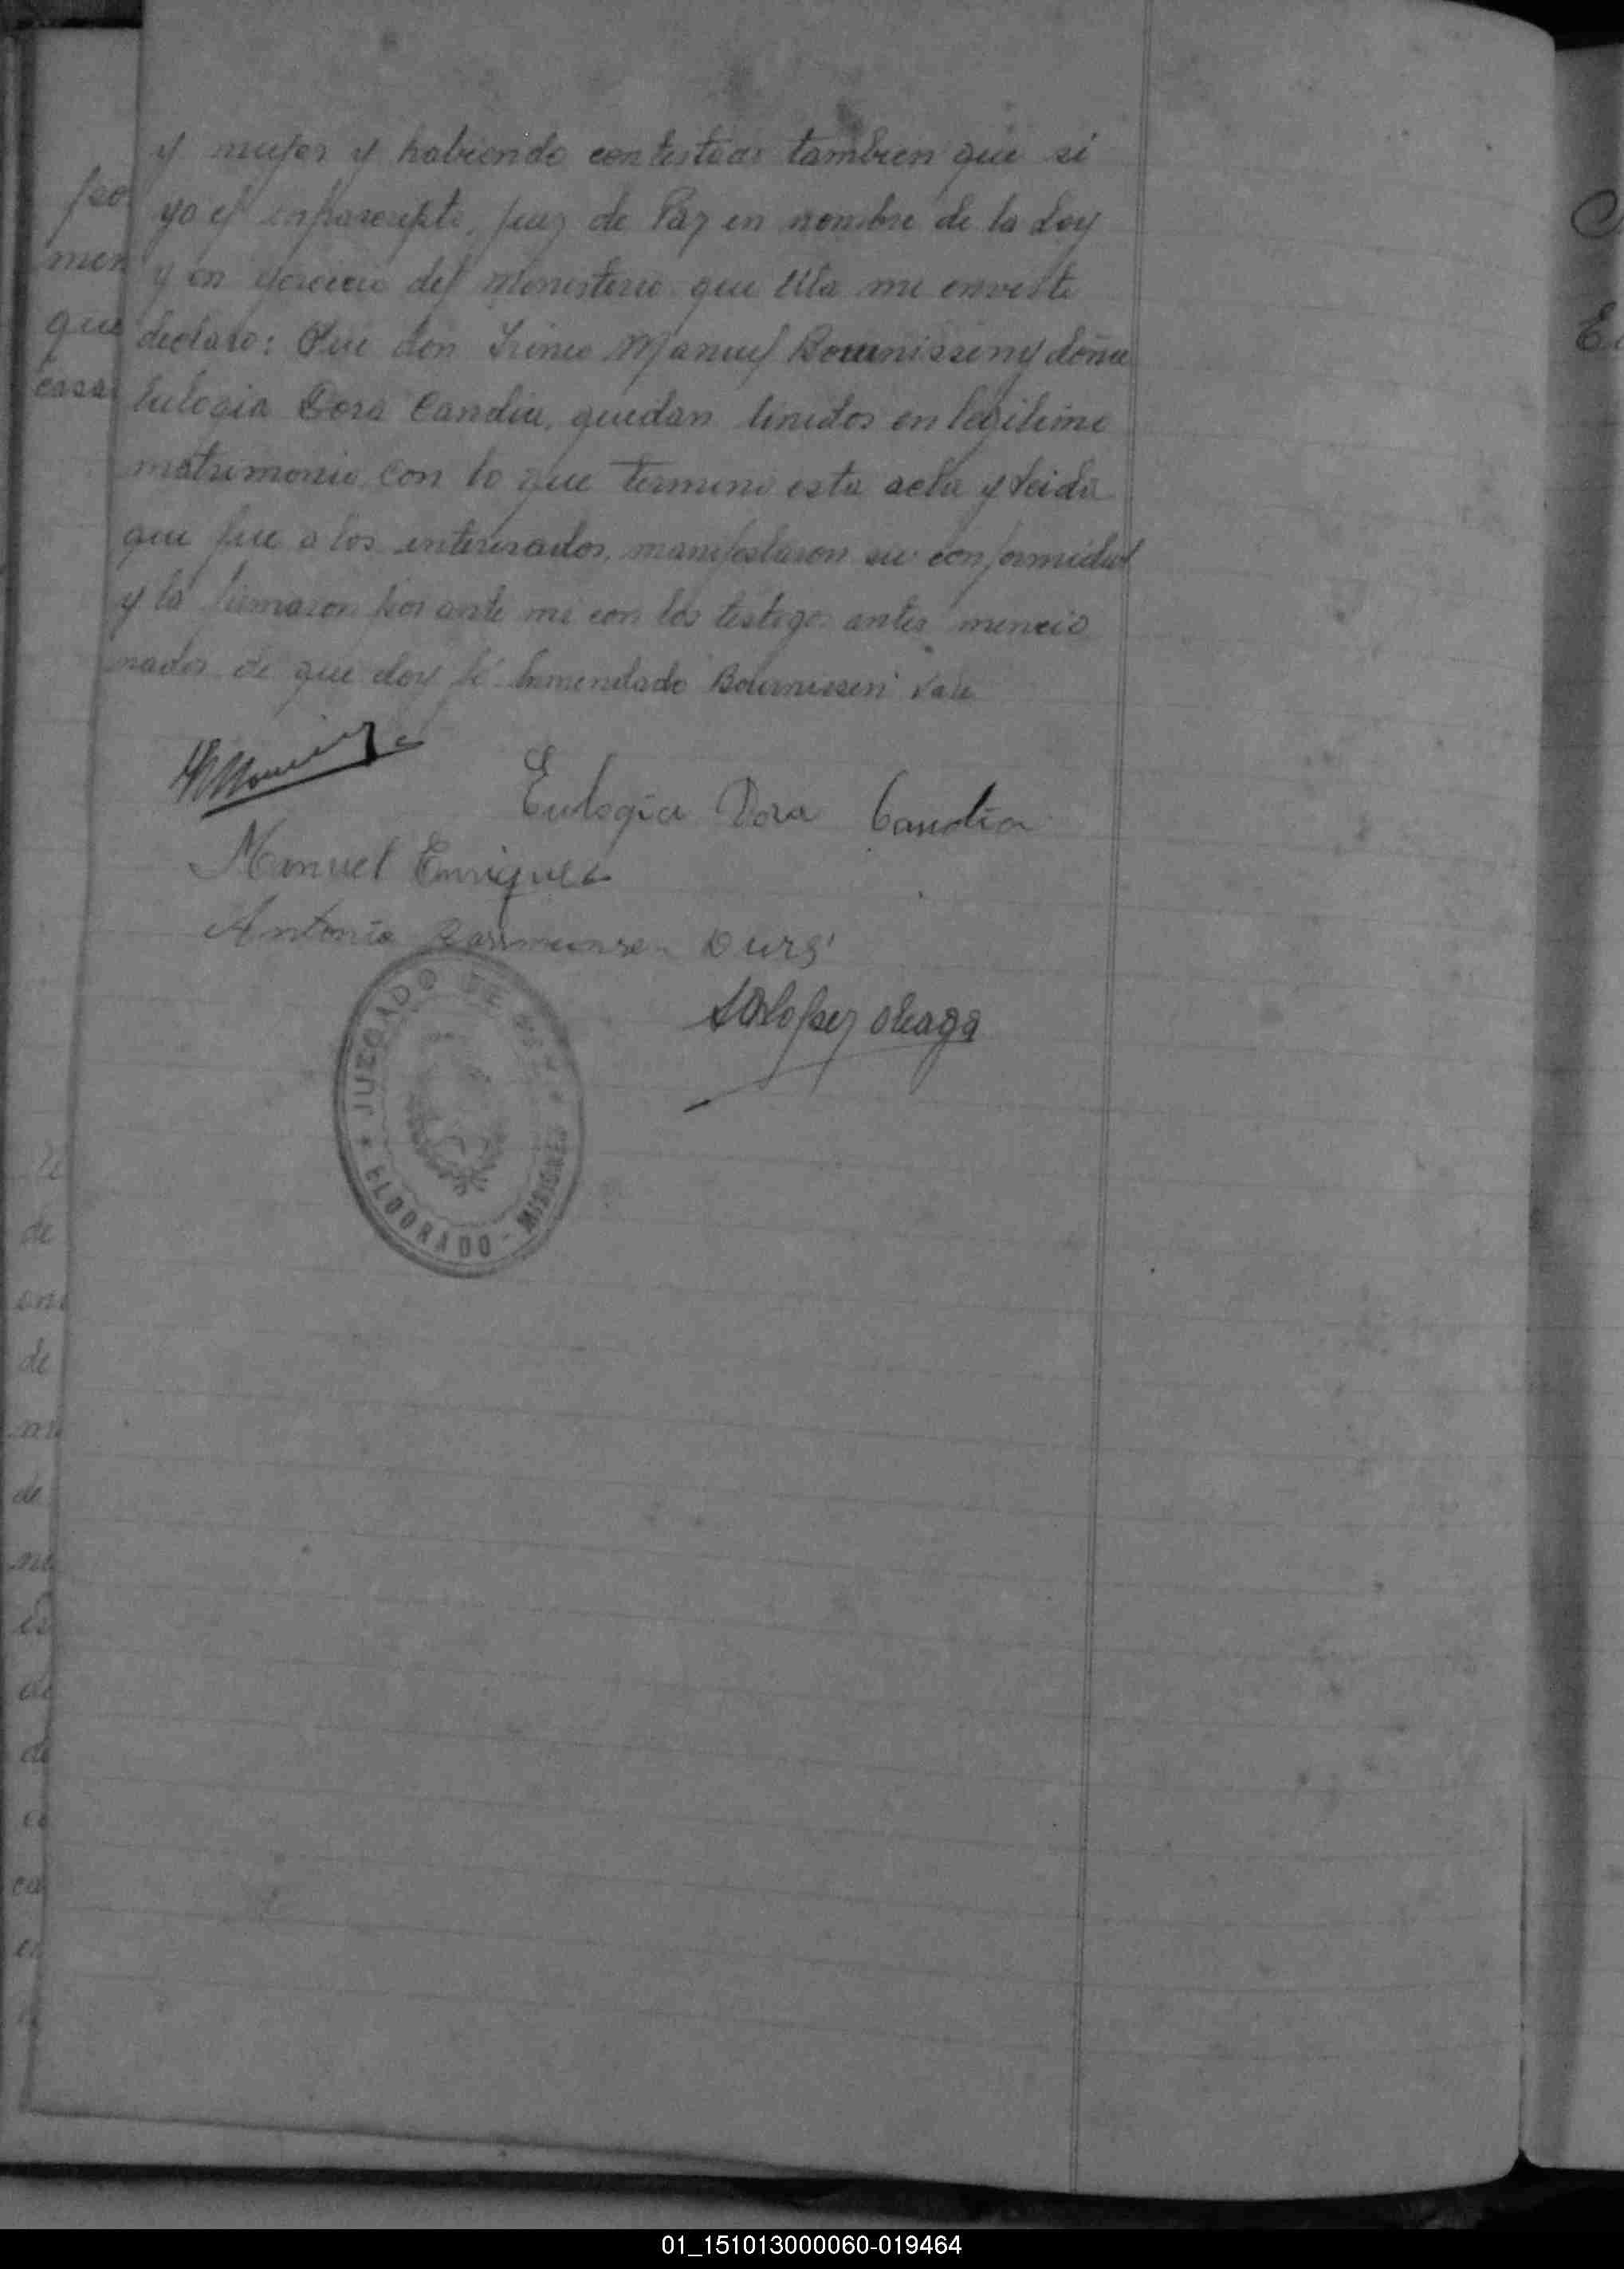 y mujer y habiendo contestado tambien que si
yo el infrascripto, Juez de Paz en nombre de la Ley
y en ejercicio del Ministerio que Ella me enviste
declaro: Que don Irineo Manuel Bournissen y doña
Eulogia Dora Candia, quedan Unidos en legitimo
matrimonio con lo que termino esta acta y Leida
que fue a los interesados, manifestaron su conformidad
y la firmaron por ante mi con los testigos antes mencio
nados de que doy fé Enmendado Bournissen Vale
Eulogia Dora Candia
Manuel Enriquez
Antonio
Lopez
JUZGADO DE PAZ
ELDORADO - MISIONES
pso
men
que
casa
de
de
de
01_151013000060-019464